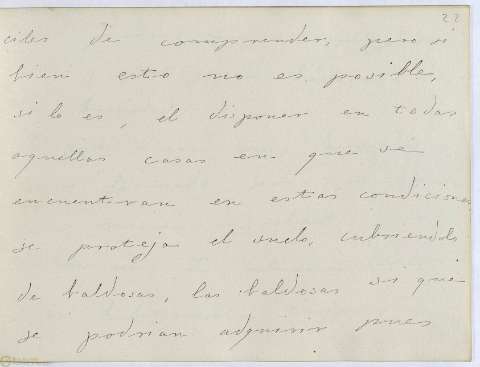 22
ciles de comprender, pero si
bien esto no es posible,
si lo es, el disponer en todas
aquellas casas en que se
encuentran en estas condiciones
se proteja el suelo, cubriendolo
de baldosas, las baldosas si que
se podrian adquirir pues